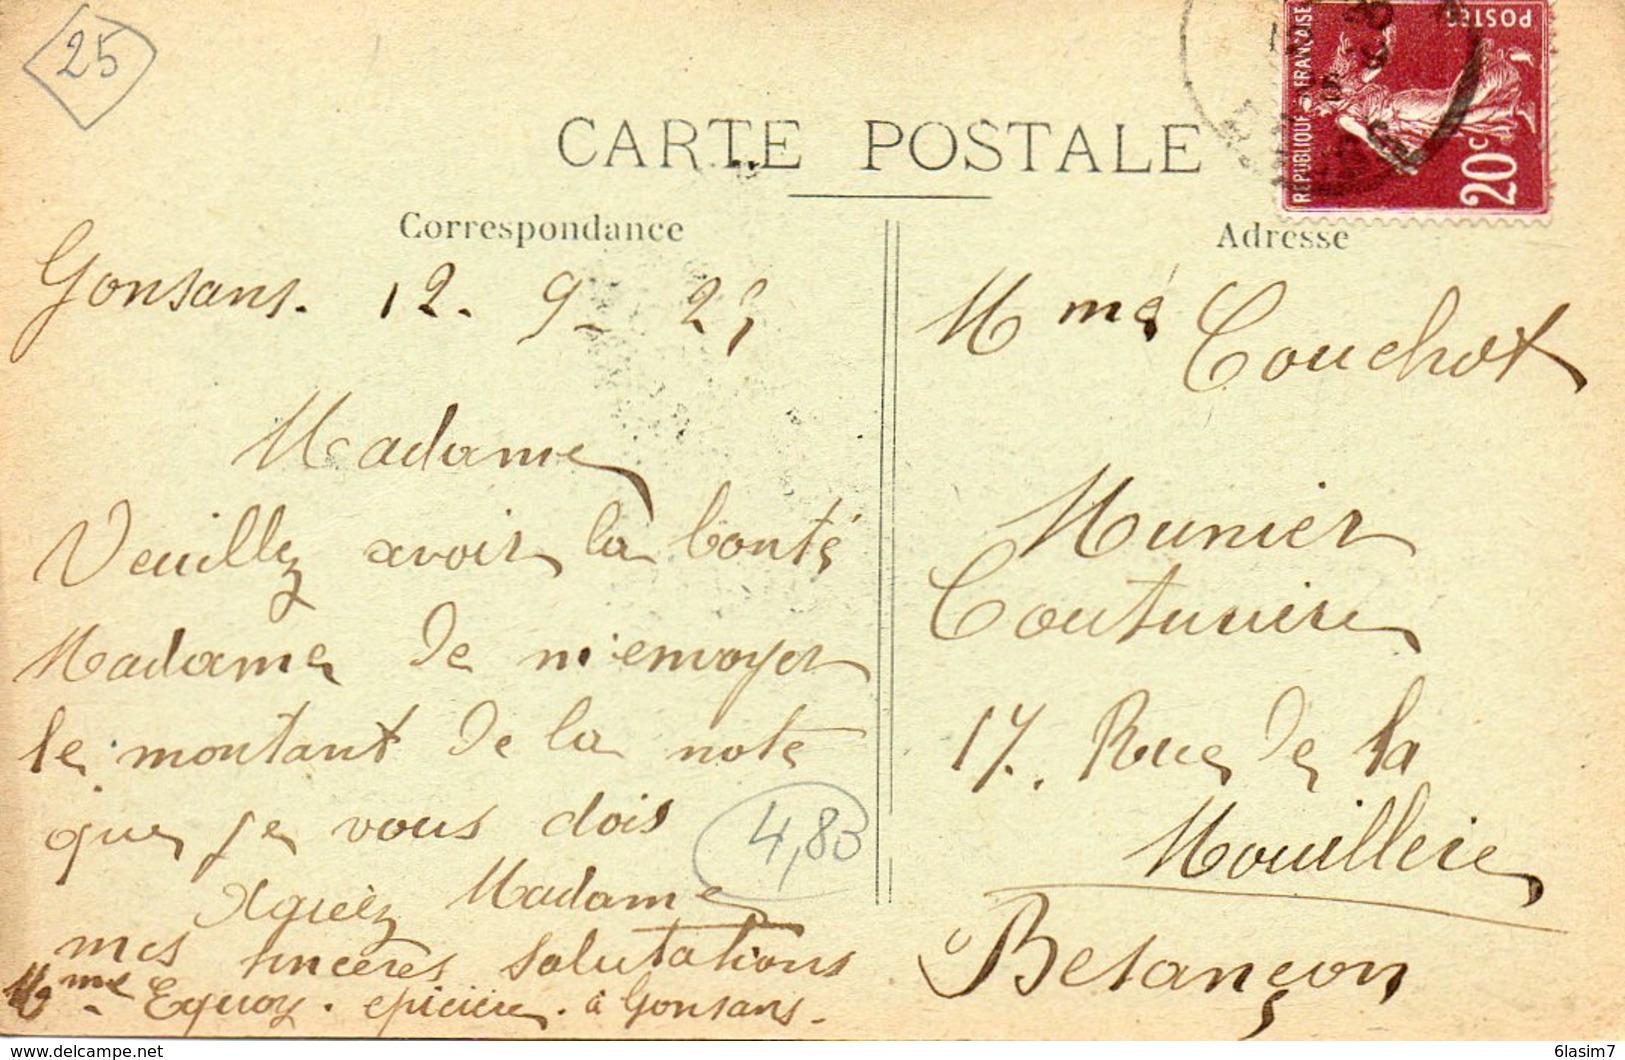 25
CARTE POSTALE
REPUBLIQUE FRANÇAISE
POSTES
20c
Correspondance
Gonsans. 12. 9. 25
Madame
Veuillez avoir la bonté
Madame de m'envoyer
le montant de la note
que je vous dois
4,80
Agréez Madame
mes sincères salutations
Mme epicière. à Gonsans.
Adresse
Mme Couchot
Munier
Couturière
17. Rue de la
Mouillère
Besançon
6lasim7
http://www.delcampe.net